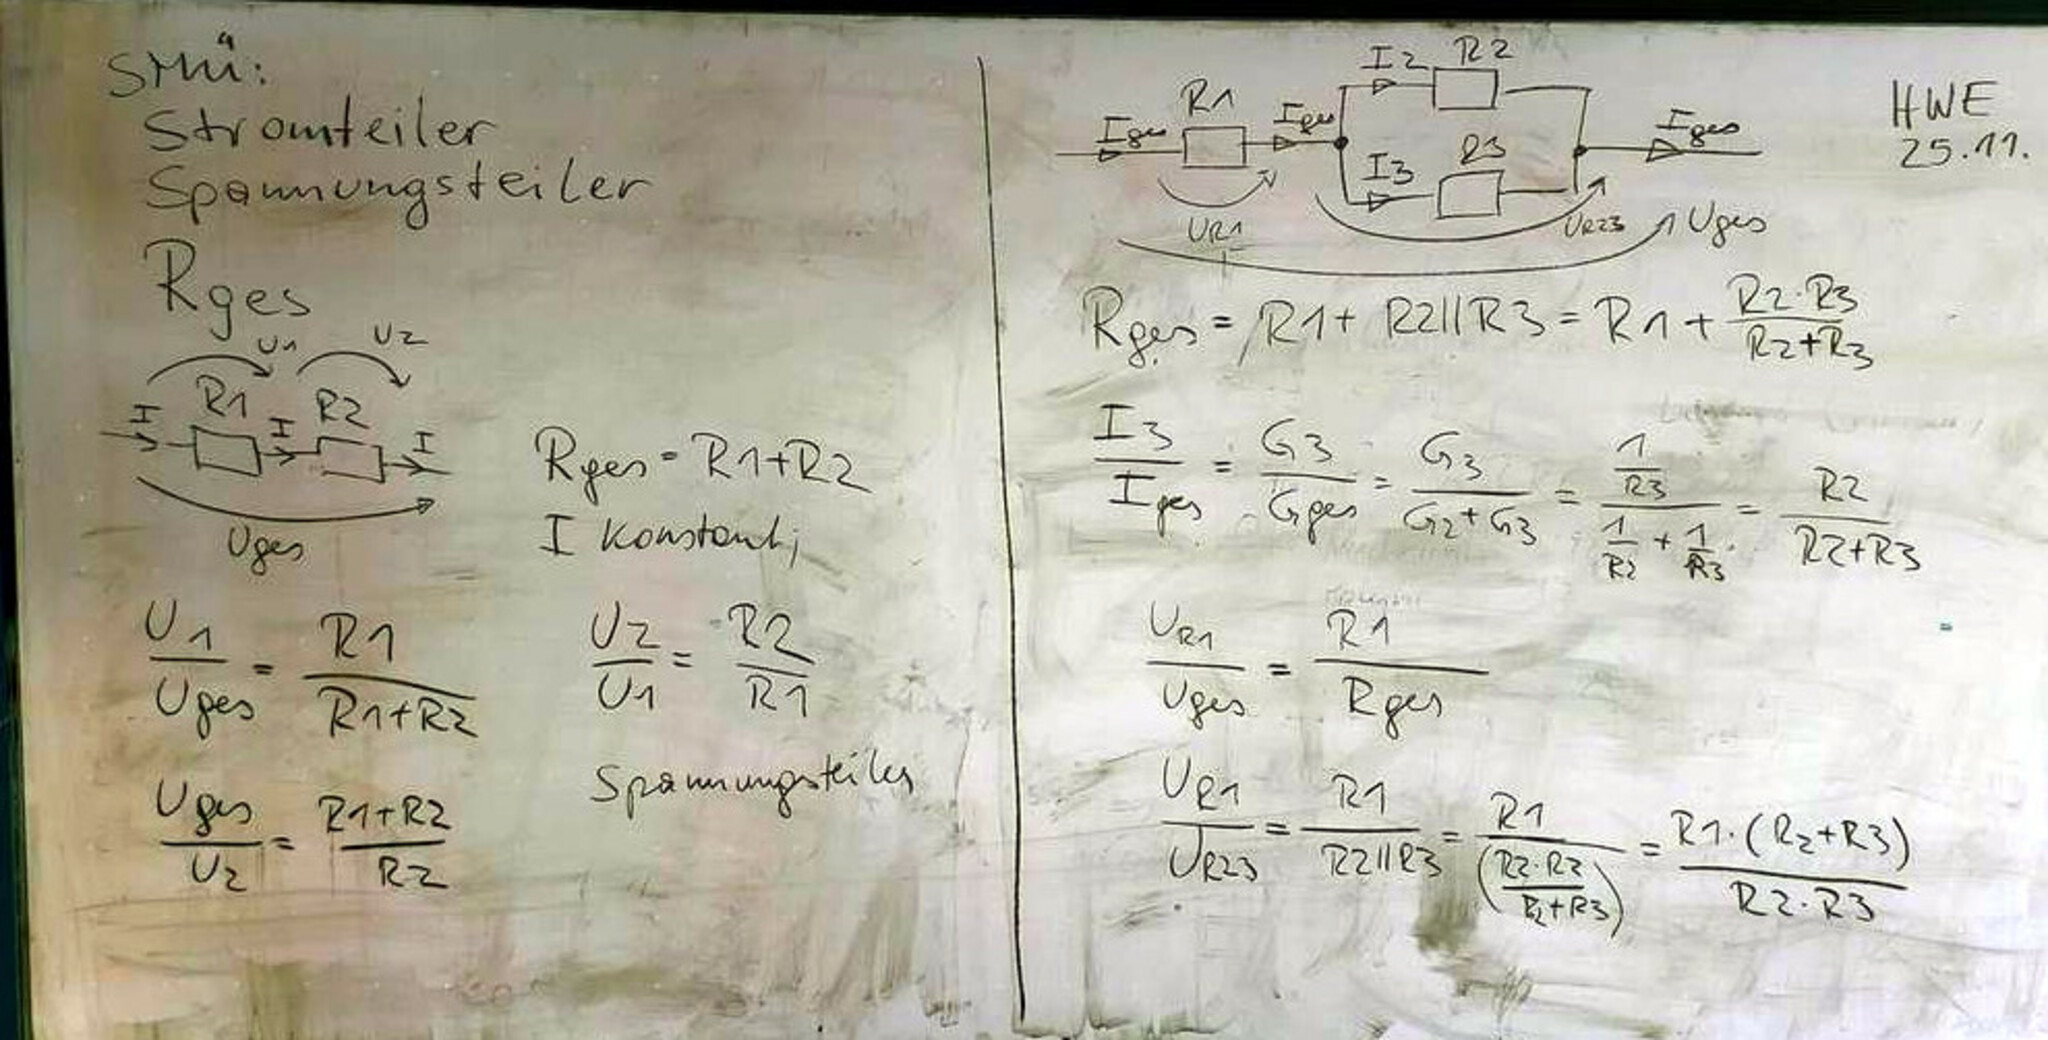 SMÜ:
Stromteiler
Spannungsteiler
Rges
U1 U2
R1 R2
I I I
Uges
Rges = R1+R2
I konstant;
U1/Uges = R1/(R1+R2)
U2/U1 = R2/R1
Uges/U2 = (R1+R2)/R2
Spannungsteiler
HWE
25.11.
I2 R2
Iges R1 Iges Iges
I3 R3
UR1 UR23 Uges
Rges = R1 + R2||R3 = R1 + (R2·R3)/(R2+R3)
I3/Iges = G3/Gges = G3/(G2+G3) = (1/R3)/(1/R2 + 1/R3) = R2/(R2+R3)
UR1/Uges = R1/Rges
UR1/UR23 = R1/(R2||R3) = R1/((R2·R2)/(R2+R3)) = (R1·(R2+R3))/(R2·R3)